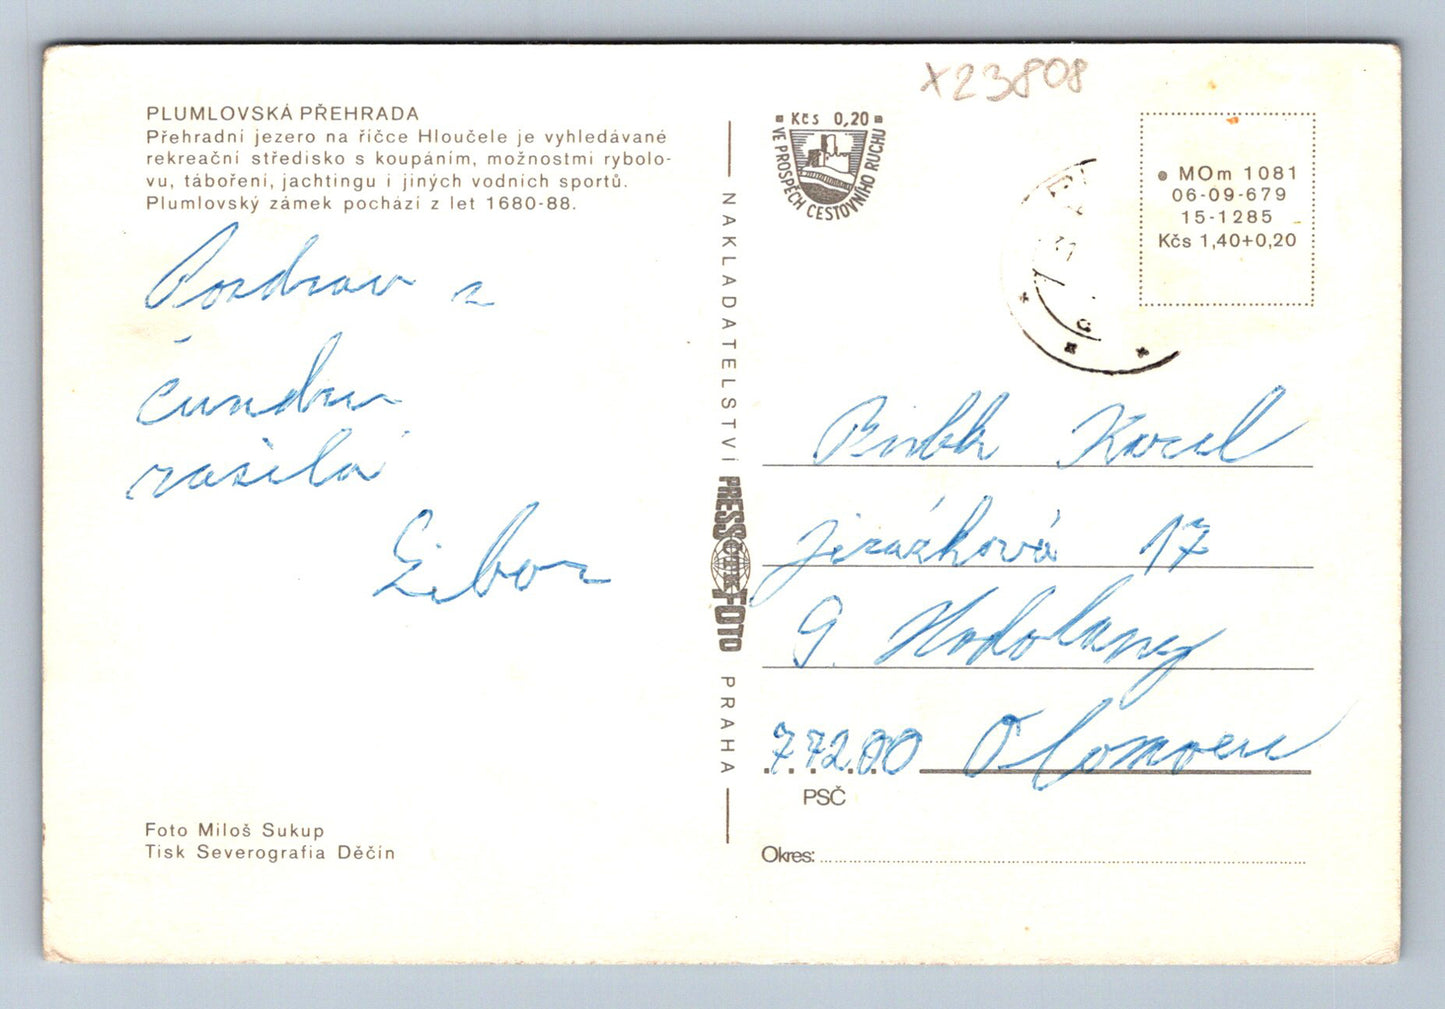 X23808
PLUMLOVSKÁ PŘEHRADA
Přehradní jezero na říčce Hloučele je vyhledávané
rekreační středisko s koupáním, možnostmi rybolo-
vu, táboření, jachtingu i jiných vodních sportů.
Plumlovský zámek pochází z let 1680-88.
Pozdrav z
čundru
zasílá
Libor
Foto Miloš Sukup
Tisk Severografia Děčín
NAKLADATELSTVÍ
PRESSFOTO
PRAHA
Kčs 0,20
VE PROSPĚCH CESTOVNÍHO RUCHU
MOm 1081
06-09-679
15-1285
Kčs 1,40+0,20
Karel
17
9. Hodolany
772 00 Olomouc
PSČ
Okres: